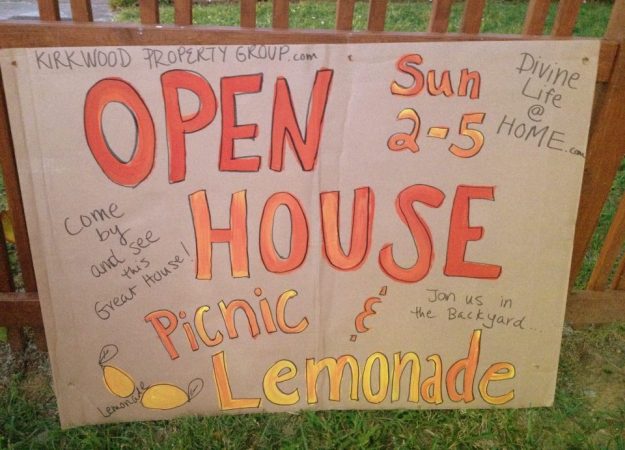 KIRKWOOD PROPERTY GROUP.com
OPEN
HOUSE
Sun
2-5
Divine
Life
@
HOME.com
Come
by
and see
this
Great House!
Picnic &
Lemonade
Jon us in
the Backyard...
Lemonade